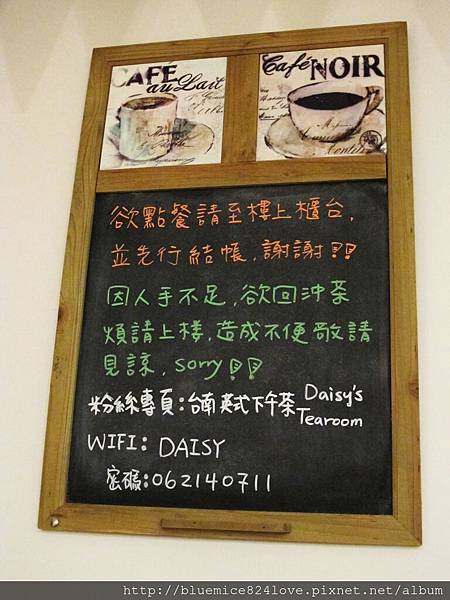 CAFÉ
au Lait
Café NOIR
欲點餐請至樓上櫃台,
並先行結帳,謝謝!!
因人手不足,欲回沖茶
煩請上樓,造成不便敬請
見諒,sorry!!
粉絲專頁:台南英式下午茶 Daisy's
Tearoom
WIFI: DAISY
密碼:062140711
http://bluemice824love.pixnet.net/album